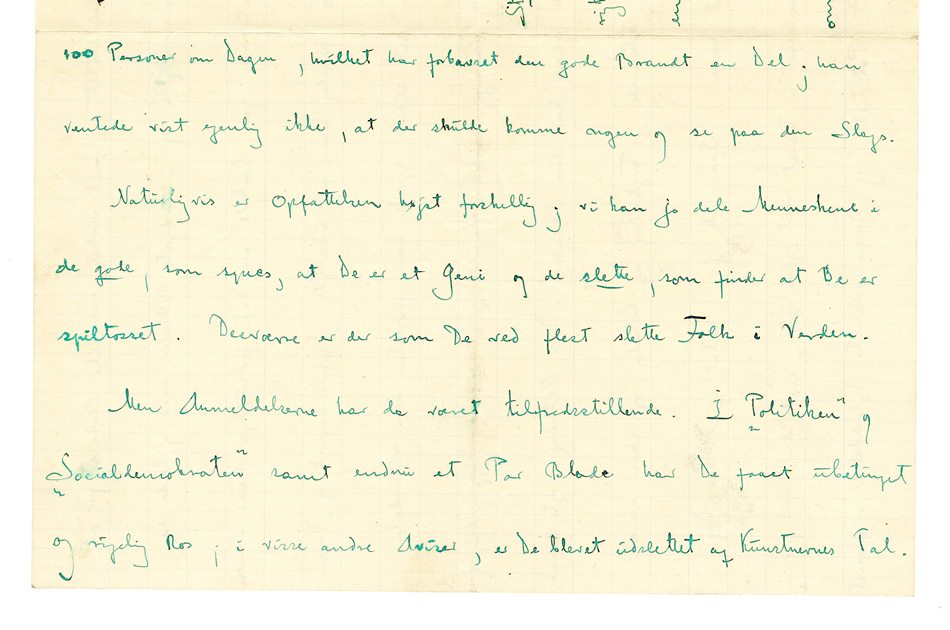 100 Personer om Dagen, hvilket har forbavset den gode Brandt en Del; han
ventede vist egenlig ikke, at der skulde komme nogen og se paa den Slags.
Naturligvis er Opfattelsen højst forskellig; vi kan jo dele Menneskene i
de gode, som synes, at De er et Geni og de slette, som finder at De er
spiltosset. Desværre er der som De ved flest slette Folk i Verden.
Men Anmeldelserne har da været tilfredsstillende. I „Politiken" og
„Socialdemokraten" samt endnu et Par Blade har De faaet ubetinget
og rigelig Ros; i visse andre Aviser, er De blevet udslettet af Kunstnernes Tal.